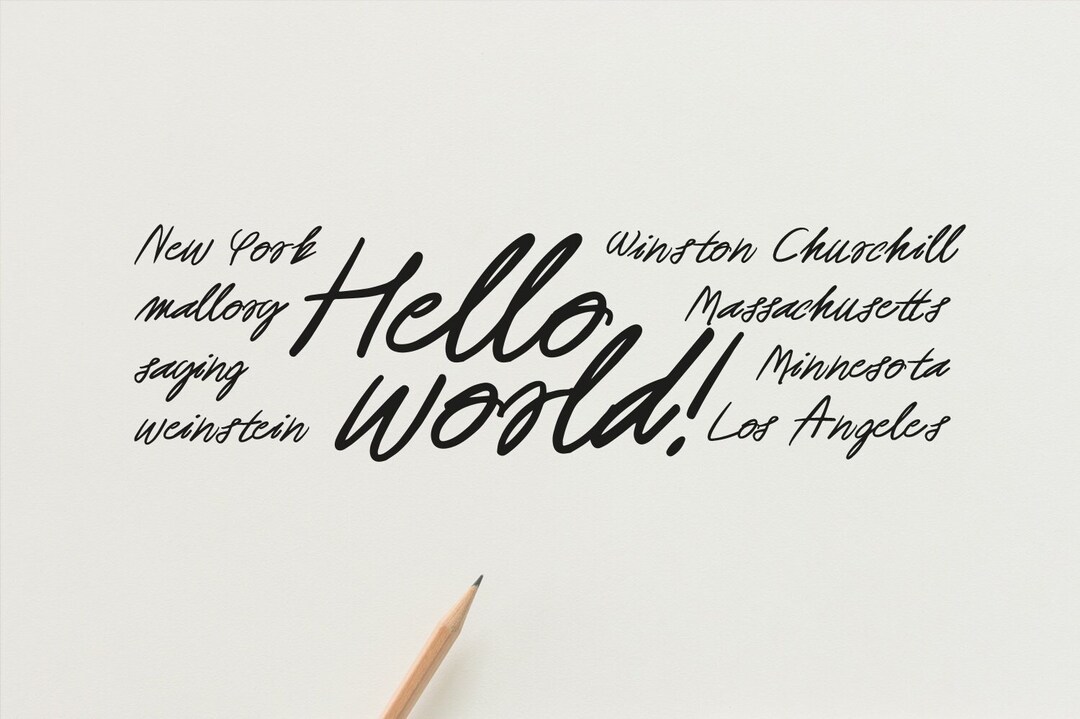 New York
mallory
saying
weinstein
Hello
world!
Winston Churchill
Massachusetts
Minnesota
Los Angeles